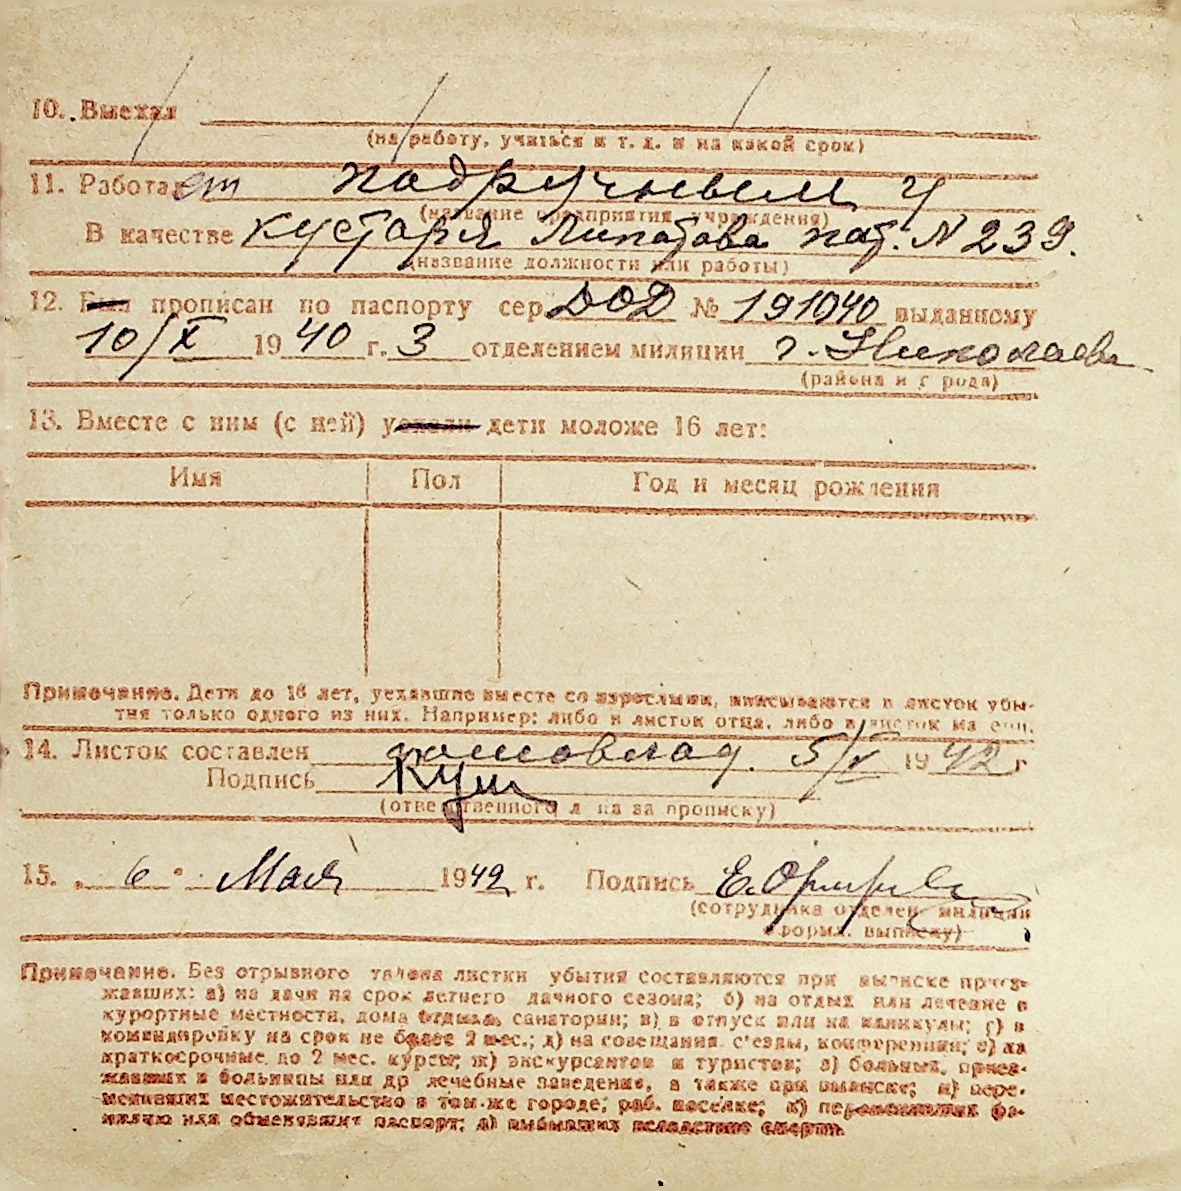 10. Выехал
(на работу, учиться и т. д. и на какой срок)
11. Работает подручным у
(название предприятия, учреждения)
В качестве кустаря Липатова пат. № 239.
(название должности или работы)
12. Был прописан по паспорту сер. ДОД № 191040 выданному
10/X 1940 г. 3 отделением милиции г. Николаева
(района и города)
13. Вместе с ним (с ней) уехали дети моложе 16 лет:
Имя Пол Год и месяц рождения
Примечание. Дети до 16 лет, уехавшие вместе со взрослыми, вписываются в листок убы-
тия только одного из них. Например: либо в листок отца, либо в листок матери.
14. Листок составлен 5/V 1942 г
Подпись
(ответственного лица за прописку)
15. „ 6 " Мая 1942 г. Подпись
(сотрудника отделен. милиции
оформл. выписку)
Примечание. Без отрывного талона листки убытия составляются при выписке приез-
жавших: а) на дачи на срок летнего дачного сезона; б) на отдых или лечение в
курортные местности, дома отдыха, санатории; в) в отпуск или на каникулы; г) в
командировку на срок не более 2 мес.; д) на совещания, с'езды, конференции; е) на
краткосрочные до 2 мес. курсы; ж) экскурсантов и туристов; з) больных, приез-
жавших в больницы или др лечебные заведения, а также при выписке; и) пере-
менивших местожительство в том-же городе, раб. поселке; к) переменивших фа-
милию или обменявших паспорт; л) выбывших вследствие смерти.